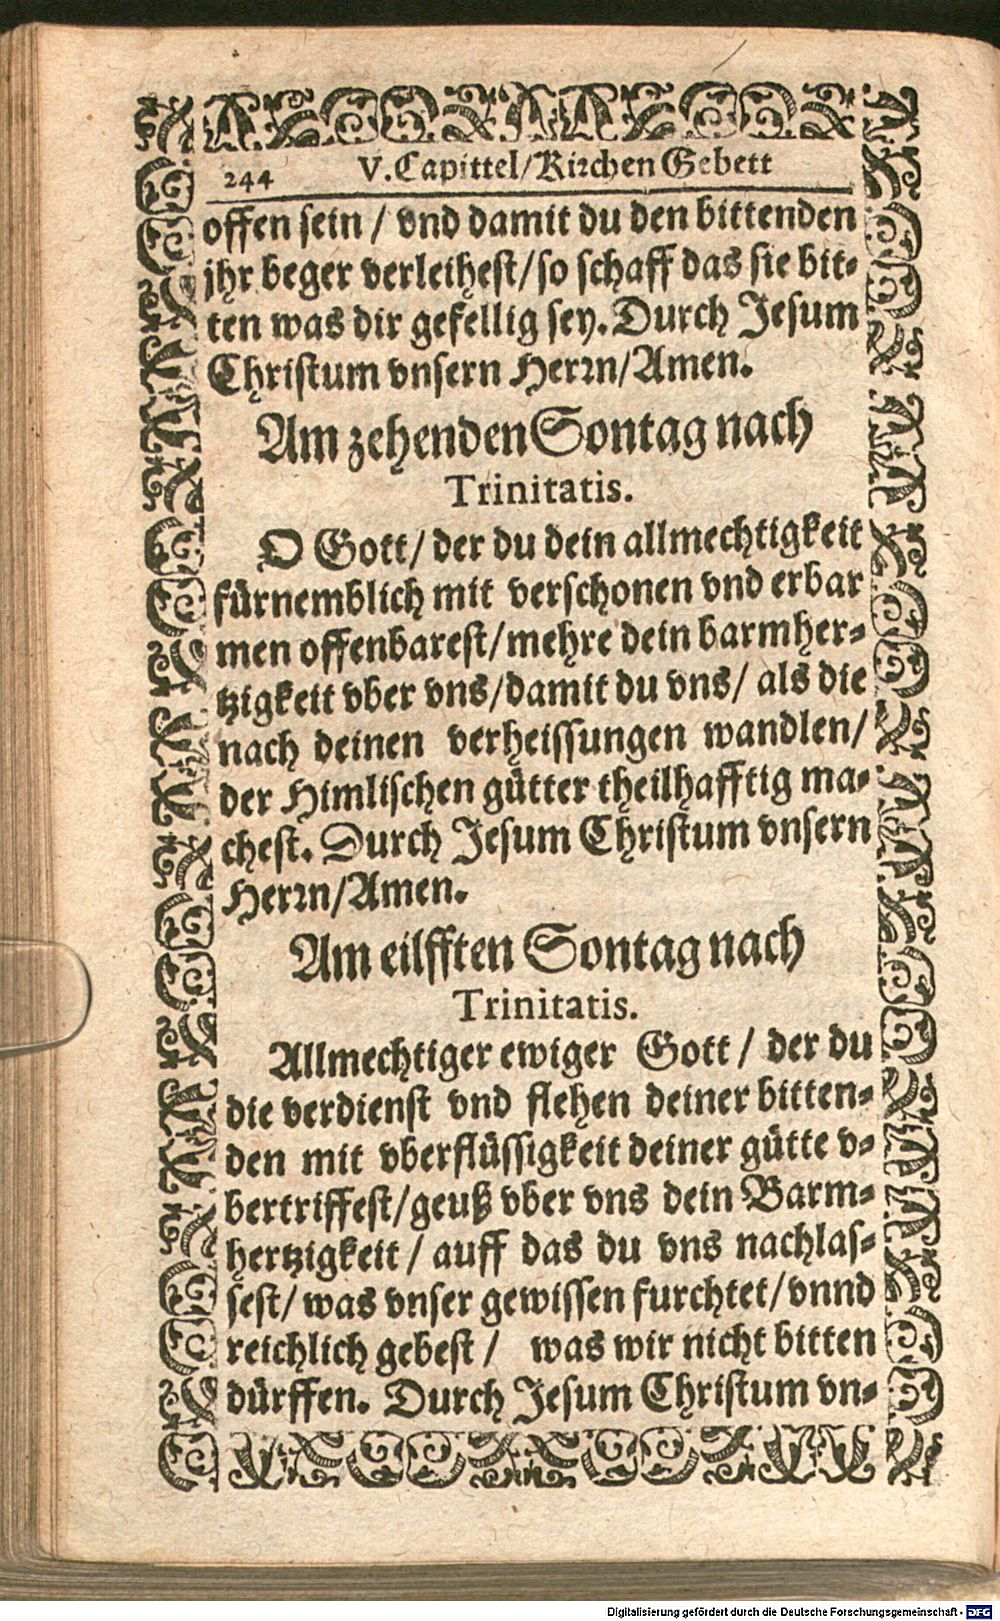 244 V. Capittel/Kirchen Gebett
offen sein / vnd damit du den bittenden
jhr beger verleihest/so schaff das sie bit-
ten was dir gefellig sey. Durch Jesum
Christum vnsern Herrn/Amen.
Am zehenden Sontag nach
Trinitatis.
O Gott/ der du dein allmechtigkeit
fürnemblich mit verschonen vnd erbar
men offenbarest/mehre dein barmher-
tzigkeit vber vns/damit du vns/ als die
nach deinen verheissungen wandlen/
der Himlischen gütter theilhafftig ma-
chest. Durch Jesum Christum vnsern
Herrn/Amen.
Am eilfften Sontag nach
Trinitatis.
Allmechtiger ewiger Gott / der du
die verdienst vnd flehen deiner bitten-
den mit vberflüssigkeit deiner gütte v-
bertriffest/geuß vber vns dein Barm-
hertzigkeit / auff das du vns nachlas-
sest/ was vnser gewissen furchtet/vnnd
reichlich gebest / was wir nicht bitten
dürffen. Durch Jesum Christum vn-
Digitalisierung gefördert durch die Deutsche Forschungsgemeinschaft - DFG